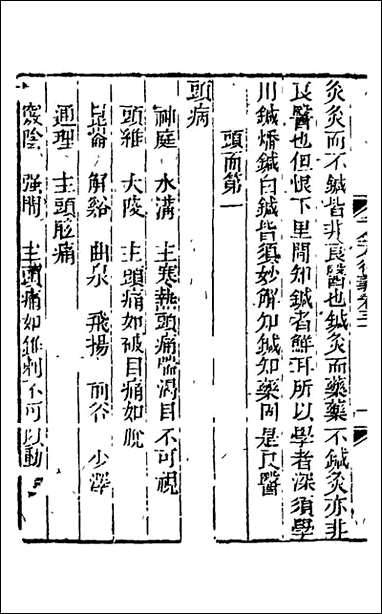 灸灸而不鍼皆非良醫也鍼灸而藥藥不鍼灸亦非
良醫也但恨下里間知鍼者鮮耳所以學者深須學
用鍼燔鍼白鍼皆須妙解知鍼知藥固是良醫
頭面第一
頭病
神庭 水溝 主寒熱頭痛喘渴目不可視
頭維 大陵 主頭痛如破目痛如脫
崑崙 解谿 曲泉 飛揚 前谷 少澤
通理 主頭眩痛
竅陰 强間 主頭痛如錐刺不可以動